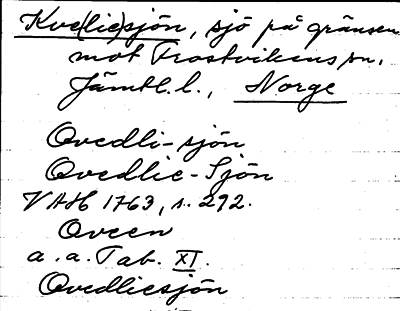 Kve(lie)sjön, sjö på gränsen
mot Frostvikens sn,
Jämtl. l., Norge
Qvedli-sjön
Qvedlie-Sjön
VAH 1763, s. 292.
Qveen
a. a. Tab. XI.
Qvedliesjön